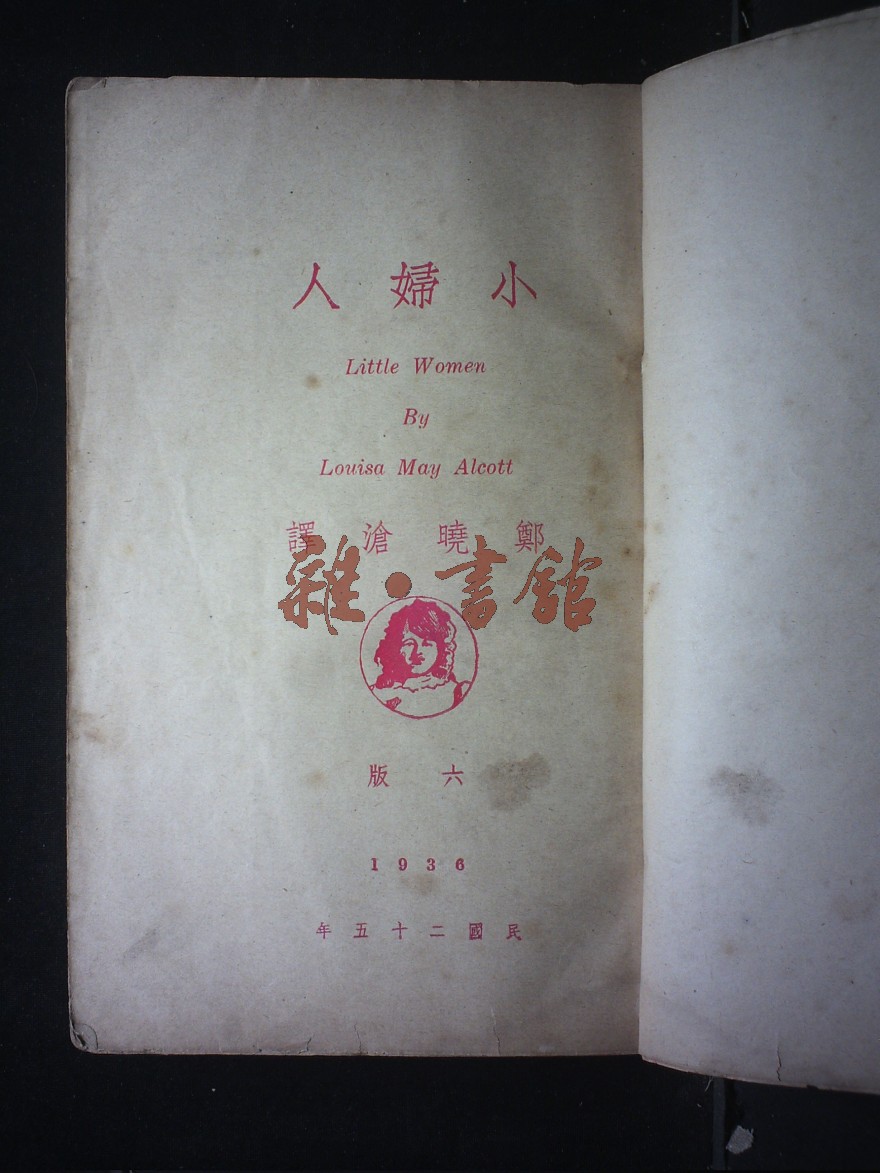 小婦人
Little Women
By
Louisa May Alcott
鄭曉滄譯
雜·書館
六版
1936
民國二十五年